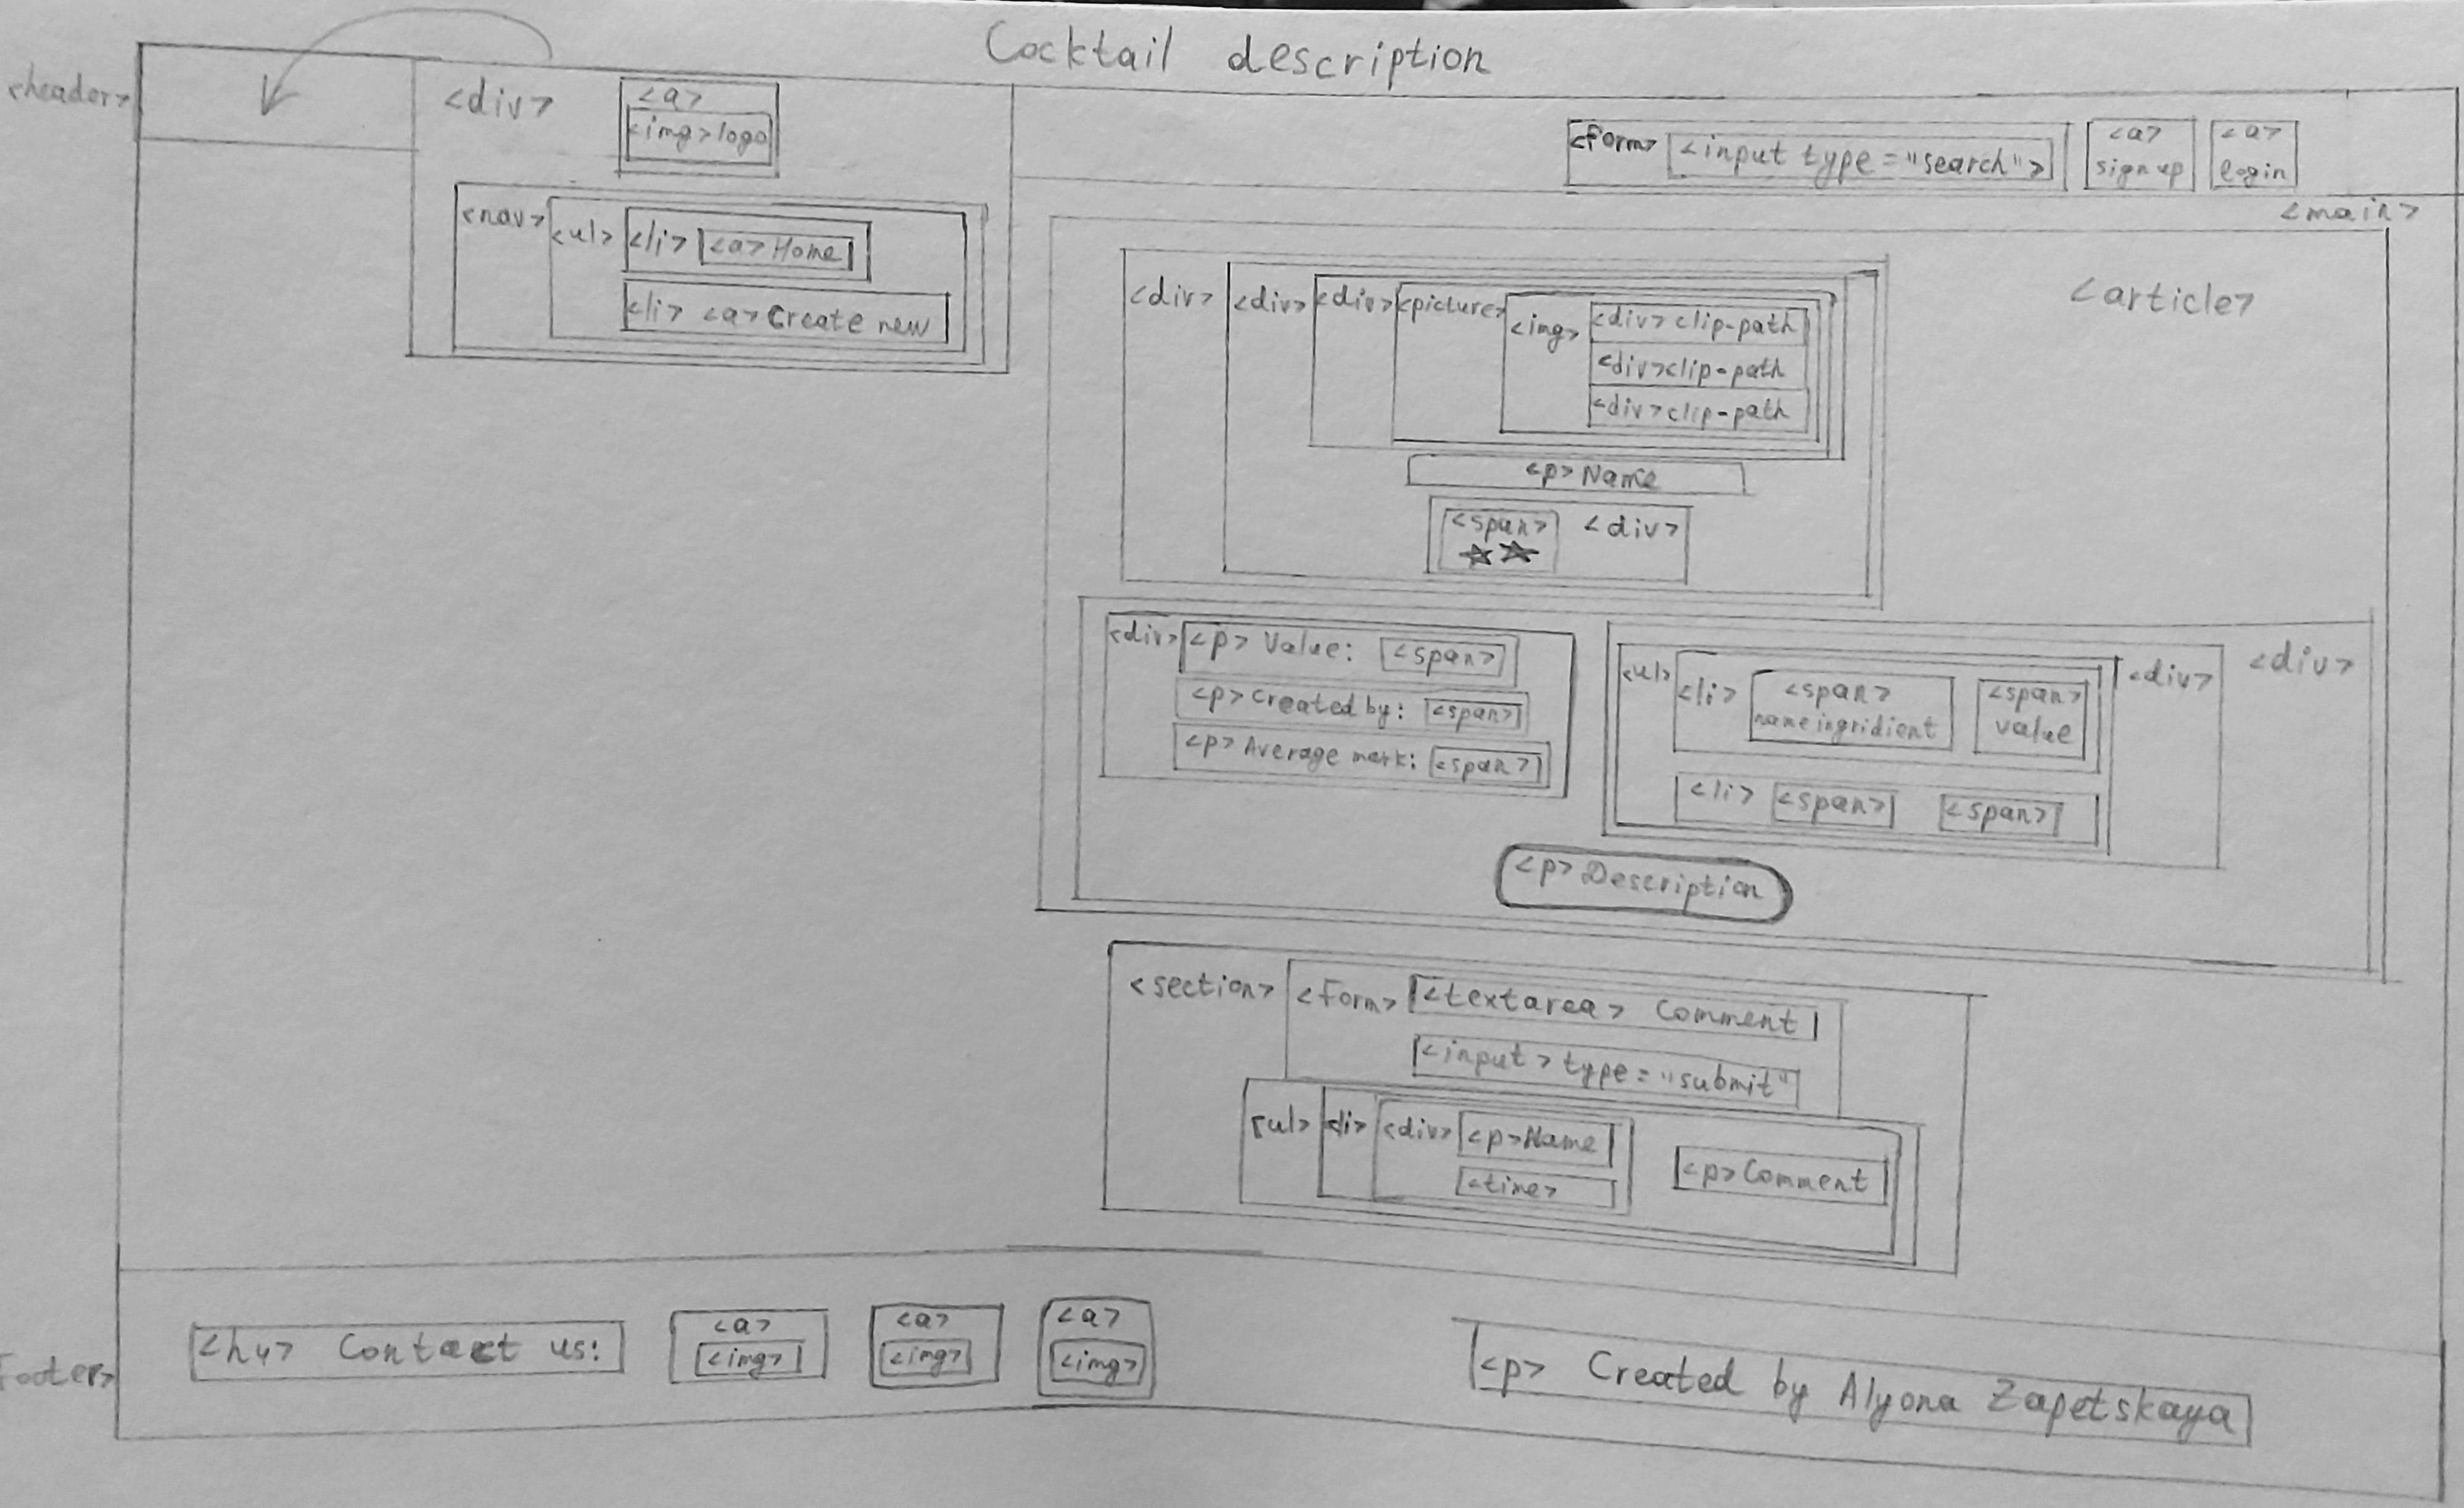 Cocktail description
<header>
<div>
<a>
<img> logo
<form> <input type="search">
<a>
sign up
<a>
login
<nav> <ul> <li> <a> Home
<li> <a> Create new
<main>
<article>
<div> <div> <div> <picture> <img> <div> clip-path
<div> clip-path
<div> clip-path
<p> Name
<span> <div>
<div> <p> Value: <span>
<p> Created by: <span>
<p> Average mark: <span>
<ul> <li> <span> name ingridient <span> value <div> <div>
<li> <span> <span>
<p> Description
<section> <form> <textarea> Comment
<input> type="submit"
<ul> <li> <div> <p> Name
<time>
<p> Comment
Footer>
<h4> Contact us:
<a>
<img>
<a>
<img>
<a>
<img>
<p> Created by Alyona Zapetskaya